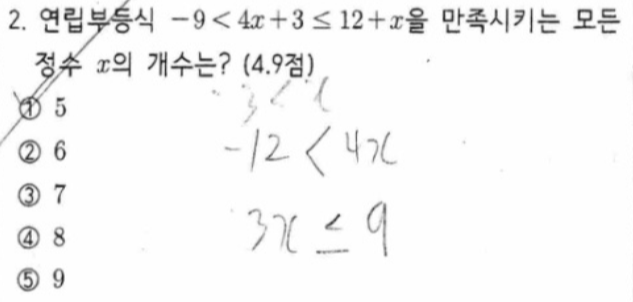 2. 연립부등식 −9 < 4x+3 ≤ 12+x을 만족시키는 모든
정수 x의 개수는? (4.9점)
① 5
② 6
③ 7
④ 8
⑤ 9
-12 < 4x
3x ≤ 9